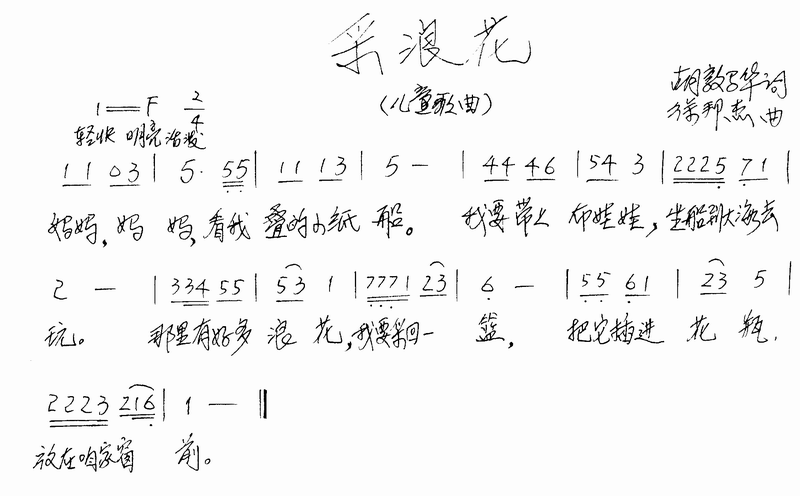 采浪花
(儿童歌曲)
1=F 2/4
胡敦骅词
轻快 明亮 活泼
徐邦杰曲
1 1 0 3 | 5· 5 5 | 1 1 1 3 | 5 — | 4 4 4 6 | 5 4 3 | 2 2 2 5 7 1 |
妈妈,妈妈,看我叠的小纸船。我要带上布娃娃,坐船到大海去
2 — | 3 3 4 5 5 | 5 3 1 | 7 7 7 1 2 3 | 6 — | 5 5 6 1 | 2 3 5 |
玩。那里有好多浪花,我要采回一篮,把它插进花瓶,
2 2 2 3 2 1 6 | 1 — ‖
放在咱家窗前。